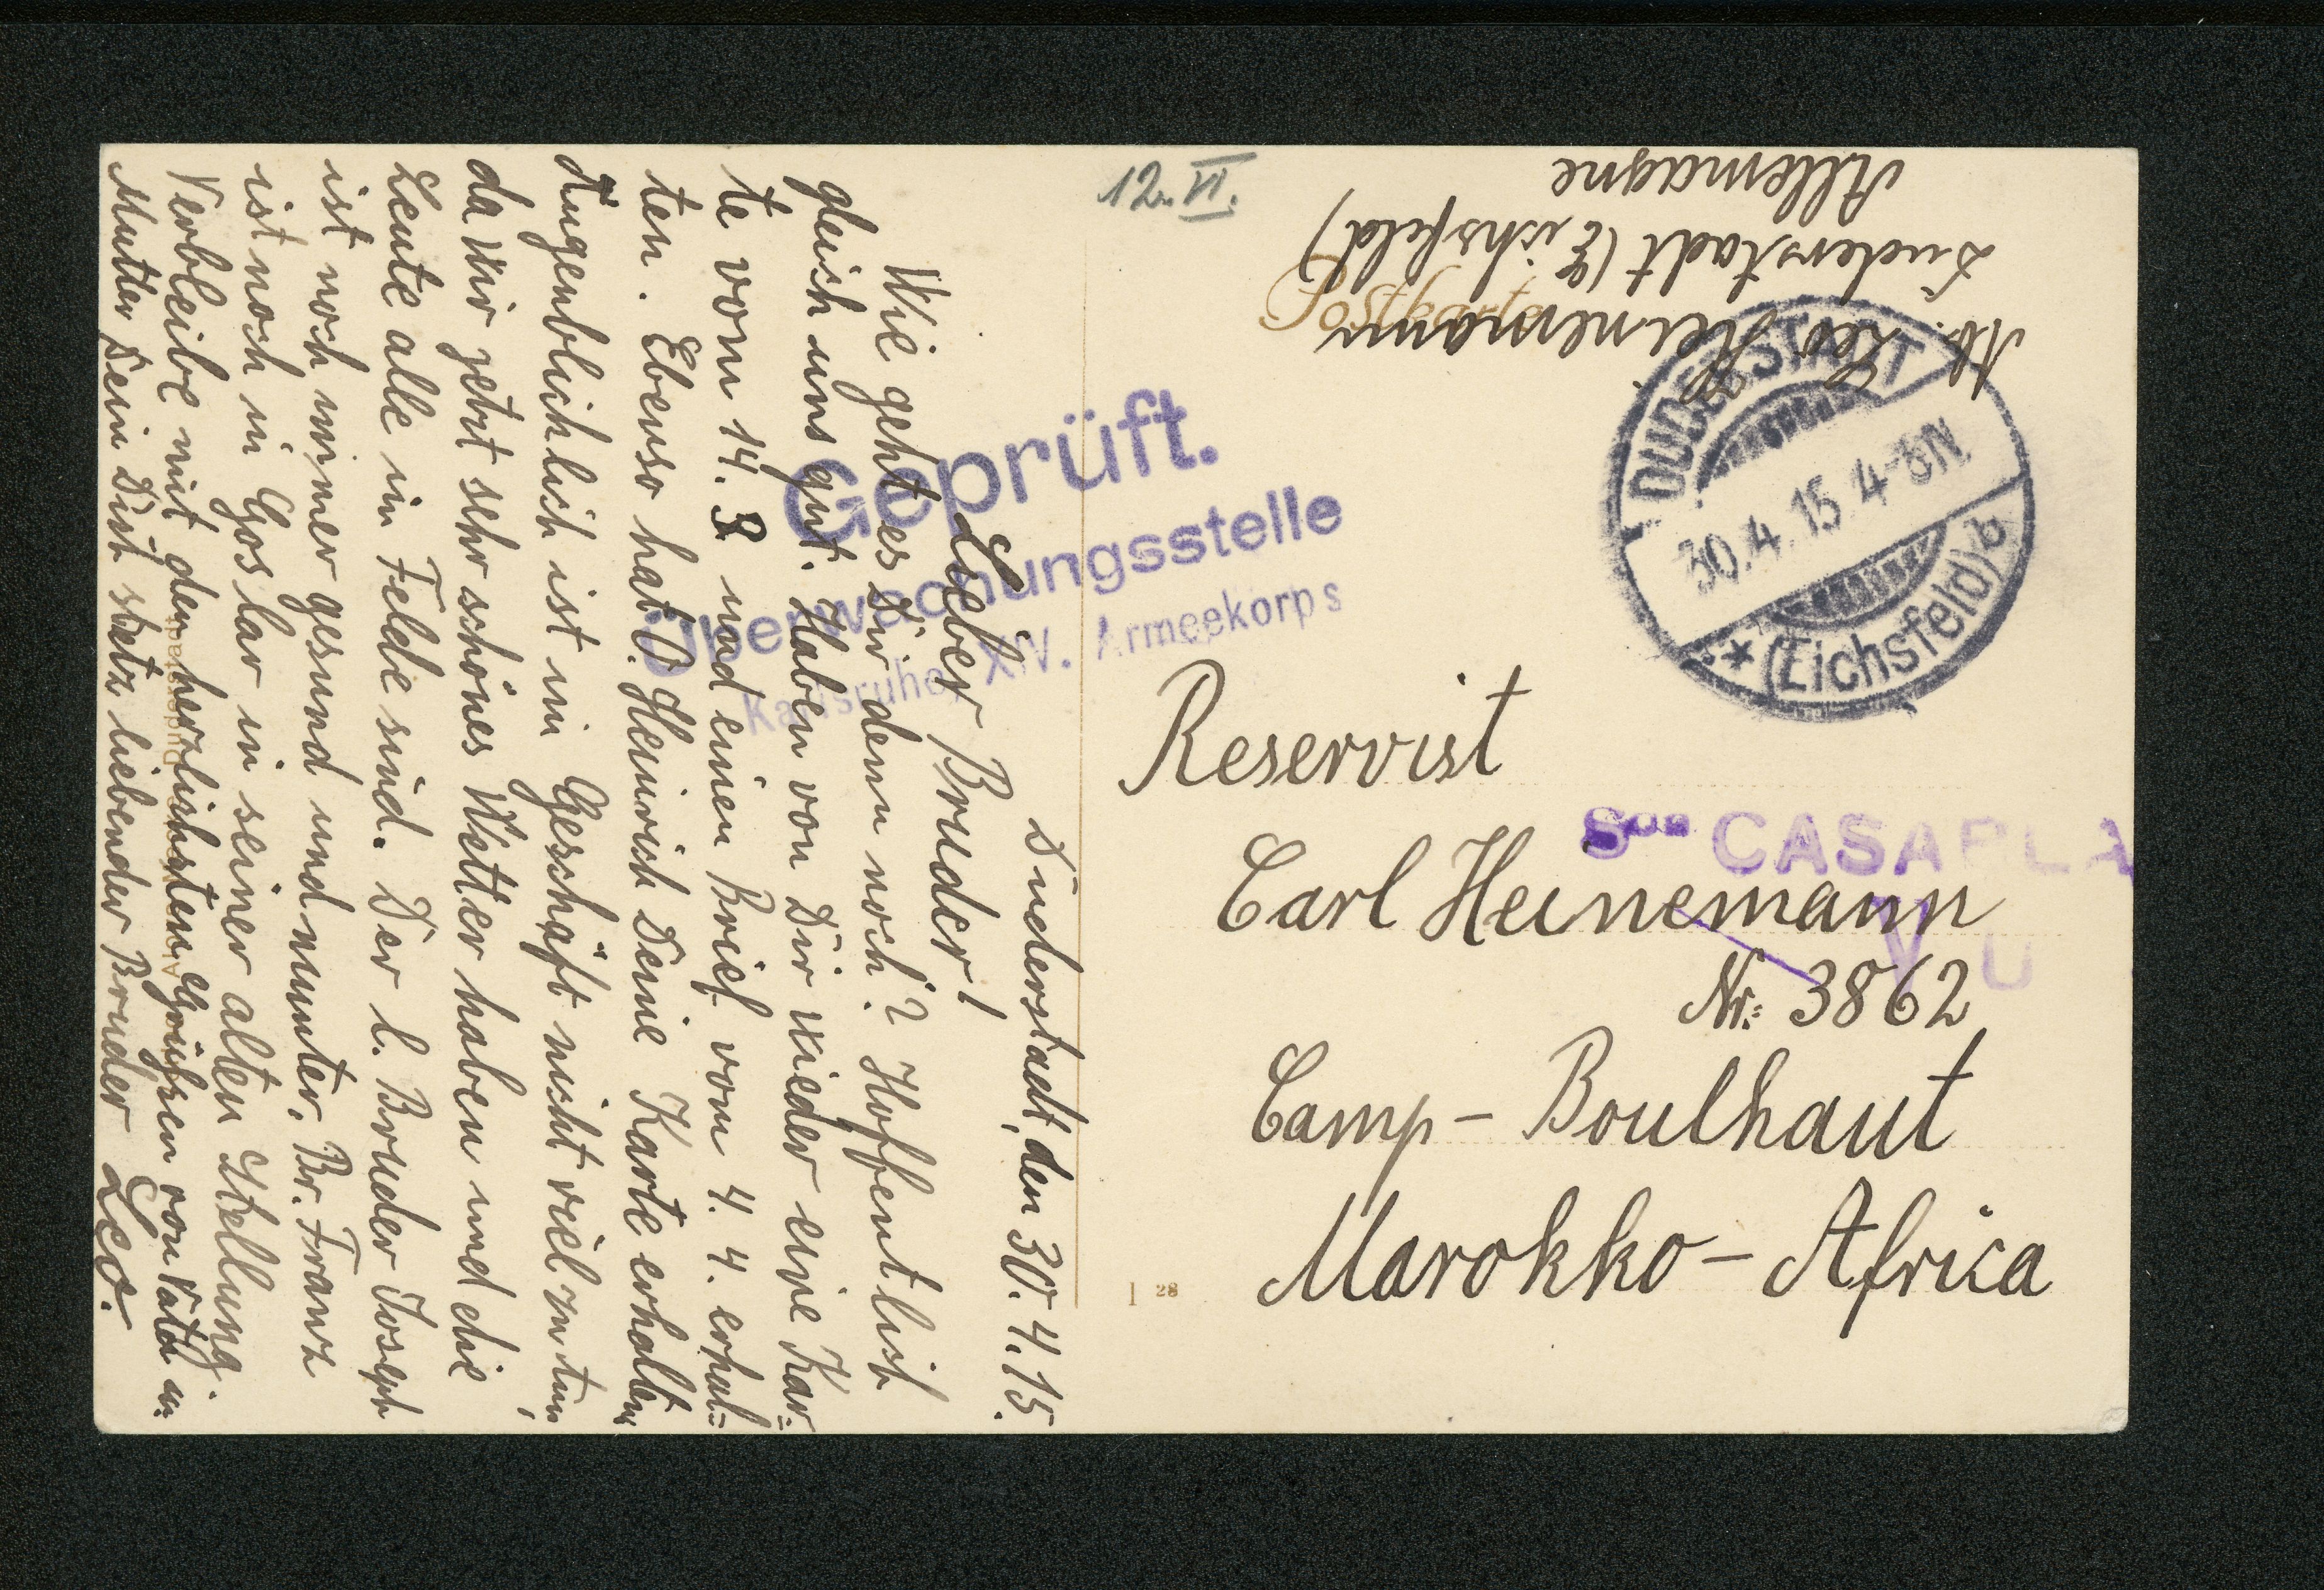 12. VI.
Ab. Leo Heinemann
Duderstadt (Eichsfeld)
Allemagne
Postkarte
DUDERSTADT
30.4.15 4-8N
* (Eichsfeld) b
Geprüft.
Überwachungsstelle
Karlsruhe, XIV. Armeekorps
Son CASABLA
V U
Reservist
Carl Heinemann
Nr. 3862
Camp - Boulhaut
Marokko - Africa
1 28
Duderstadt, den 30.4.15.
Lieber Bruder!
Wie geht es Dir denn noch? Hoffentlich
gleich uns gut. Haben von Dir wieder eine Kar=
te vom 14. 3 und einen Brief vom 4. 4. erhal=
ten. Ebenso hat O. Heinrich Deine Karte erhalten
Augenblicklich ist im Geschäft nicht viel zu tun,
da wir jetzt sehr schönes Wetter haben und die
Leute alle im Felde sind. Der l. Bruder Joseph
ist noch immer gesund und munter. Br. Franz
ist noch in Goslar in seiner alten Stellung.
Verbleibe mit den herzlichsten Grüßen von Vater u.
Mutter Dein Dich stetz liebender Bruder Leo.